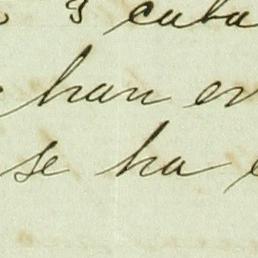 3 caba
han en
se ha